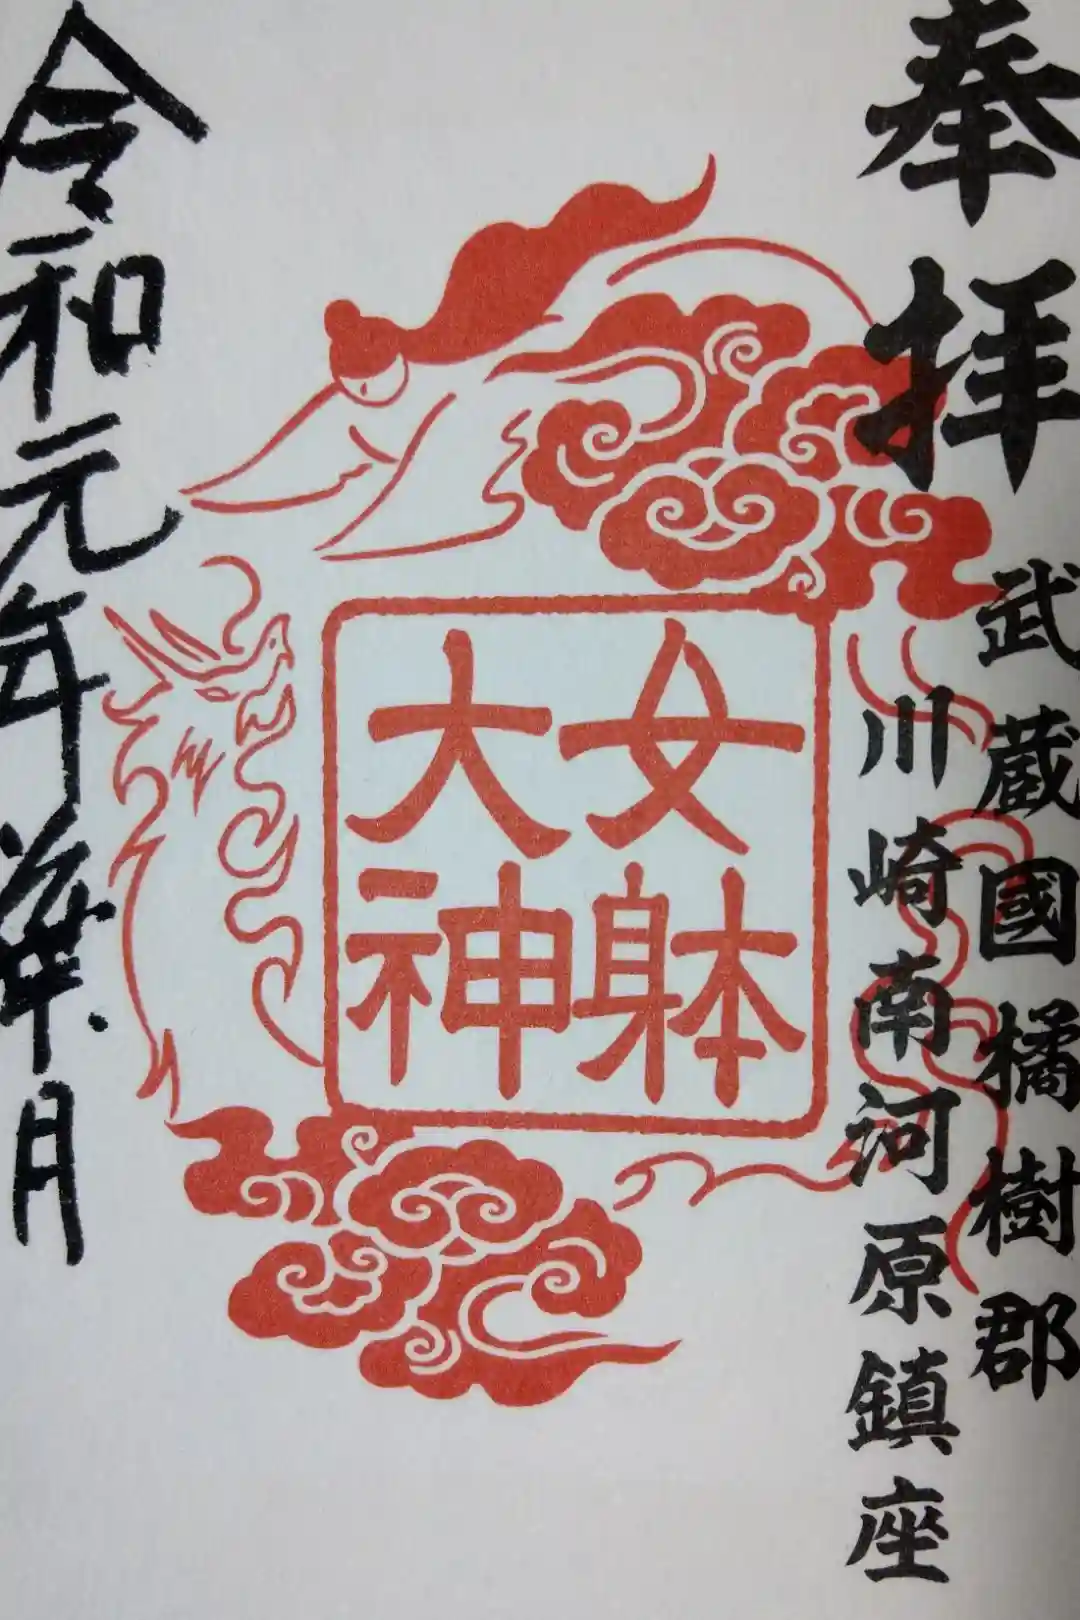 奉拝
武蔵國橘樹郡
川崎南河原鎮座
女躰
大神
令和元年葉月